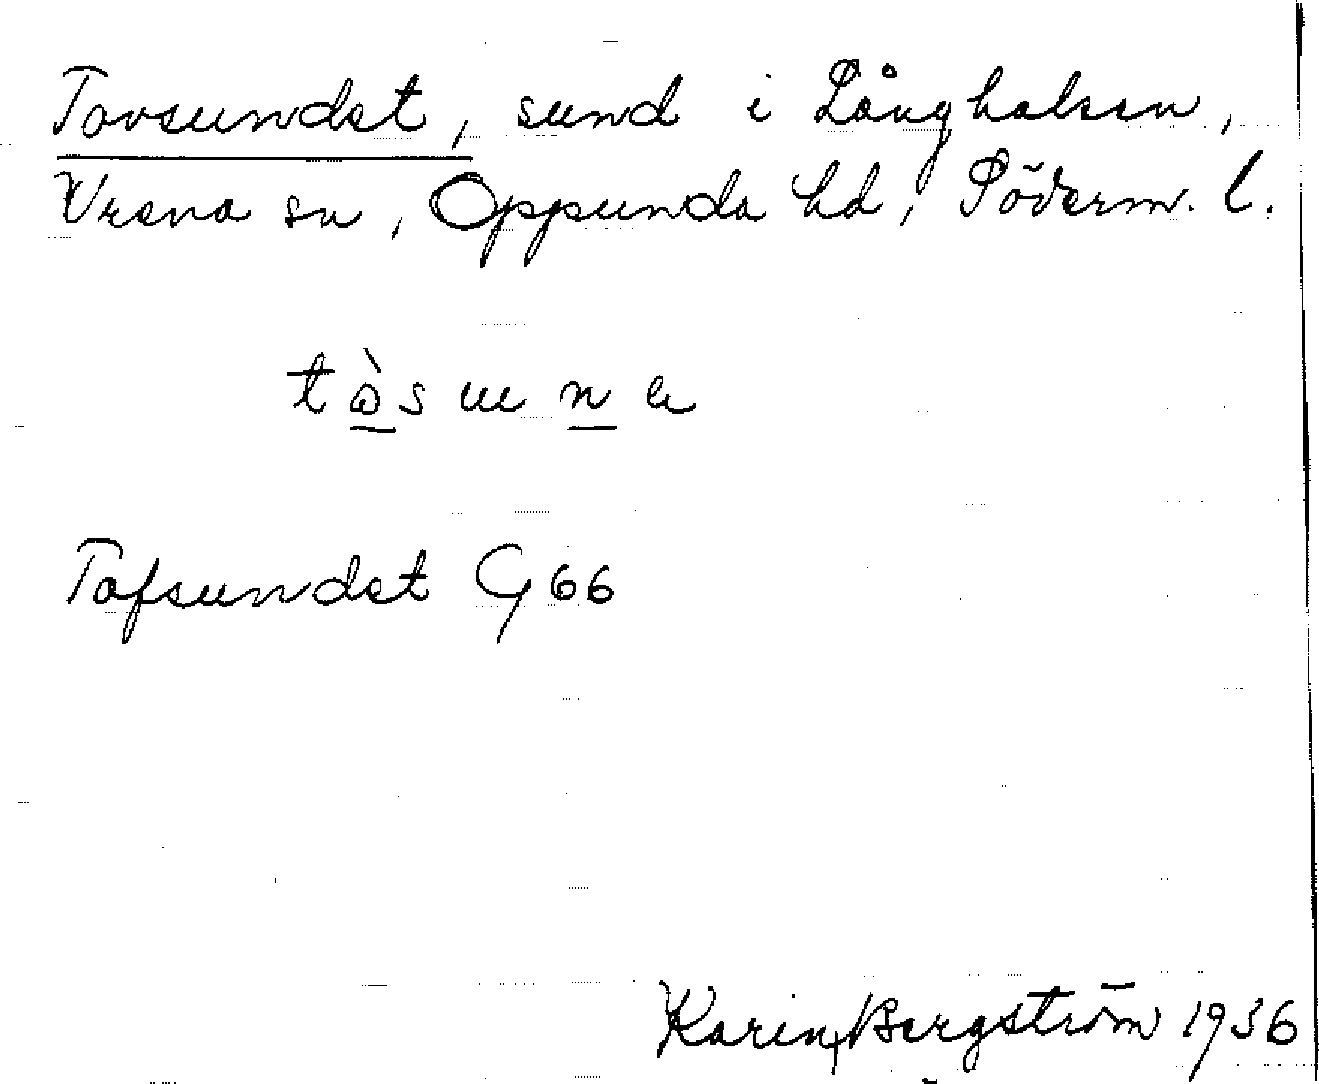 Tovsundet, sund i Långhalsen,
Vrena sn, Oppunda hd, Söderm. l.
Tofsundet G 66
Karin Bergström 1936